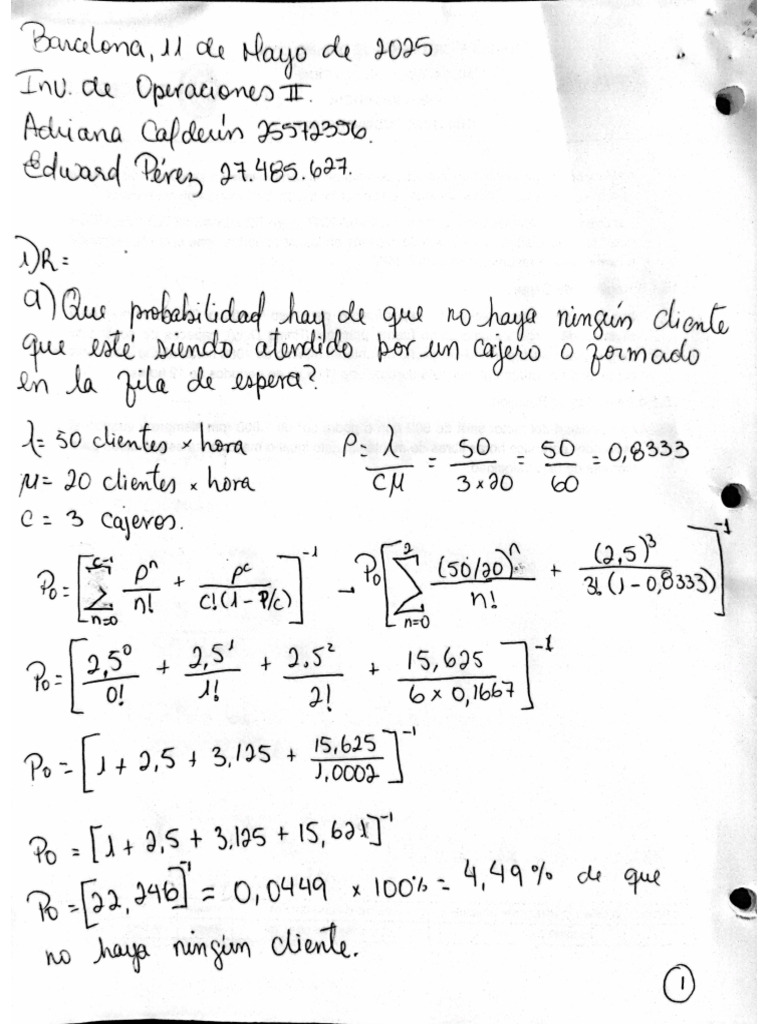 Barcelona, 11 de Mayo de 2025
Inv. de Operaciones II.
Adriana Calderín 25572356.
Edward Pérez 27.485.627.
1) R=
a) Que probabilidad hay de que no haya ningún cliente
que esté siendo atendido por un cajero o formado
en la fila de espera?
λ= 50 clientes × hora   ρ = λ/cμ = 50/3×20 = 50/60 = 0,8333
μ= 20 clientes × hora
c = 3 cajeros.
P₀ = [∑_{n=0}^{c-1} ρⁿ/n! + ρᶜ/c!(1-ρ/c)]⁻¹ → P₀ [∑_{n=0}^{2} (50/20)ⁿ/n! + (2,5)³/3!(1-0,8333)]⁻¹
P₀ = [2,5⁰/0! + 2,5¹/1! + 2,5²/2! + 15,625/6 × 0,1667]⁻¹
P₀ = [1 + 2,5 + 3,125 + 15,625/1,0002]⁻¹
P₀ = [1 + 2,5 + 3,125 + 15,621]⁻¹
P₀ = [22,246]⁻¹ = 0,0449 × 100% = 4,49% de que
no haya ningún cliente.
1